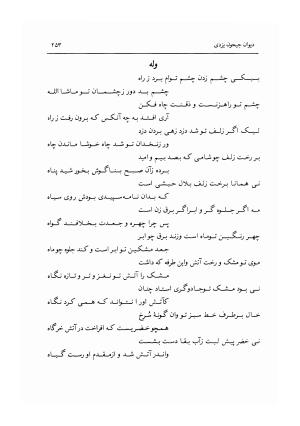 دیوان جیحون یزدی
۲۵۳
وله
بیکی چشم زدن چشم توام برد ز راه
چشم بد دور ز چشمان تو ماشا الله
چشم تو راهزنست و ذقنت چاه فکن
آری افتد به چه آنکس که برون رفت ز راه
لیک اگر زلف تو شد دزد زهی بردن دزد
ور زنخدان تو شد چاه خوشا ماندن چاه
بر رخت زلف چو شامی که بصد بیم و امید
برده زآن صبح بناگوش بخورشید پناه
نی همانا برخت زلف بلال حبشی است
که بدان نامه سپیدی بودش روی سیاه
مه اگر جلوه گر و ابر اگر برق زن است
پس چرا چهره و جمدت بخلافند گواه
چهر رنگین تو ماه است وزند برق چو ابر
جعد مشکین تو ابر است و کند جلوه چو ماه
موی تو مشک و رخت آتش واین طرفه که داشت
مشک را آتش تو نغز و تر و تازه نگاه
نی بود مشک تو جادوگری استاد چنان
کآتش او را نتواند که همی کرد نگاه
خال برطرف خط سبز تو وان گونهٔ سرخ
همچو خضریست که افراخت در آتش خرگاه
نی خضر پیش لبت زآب بقا دست بشست
واندر آتش شد و از مقدم او رست گیاه